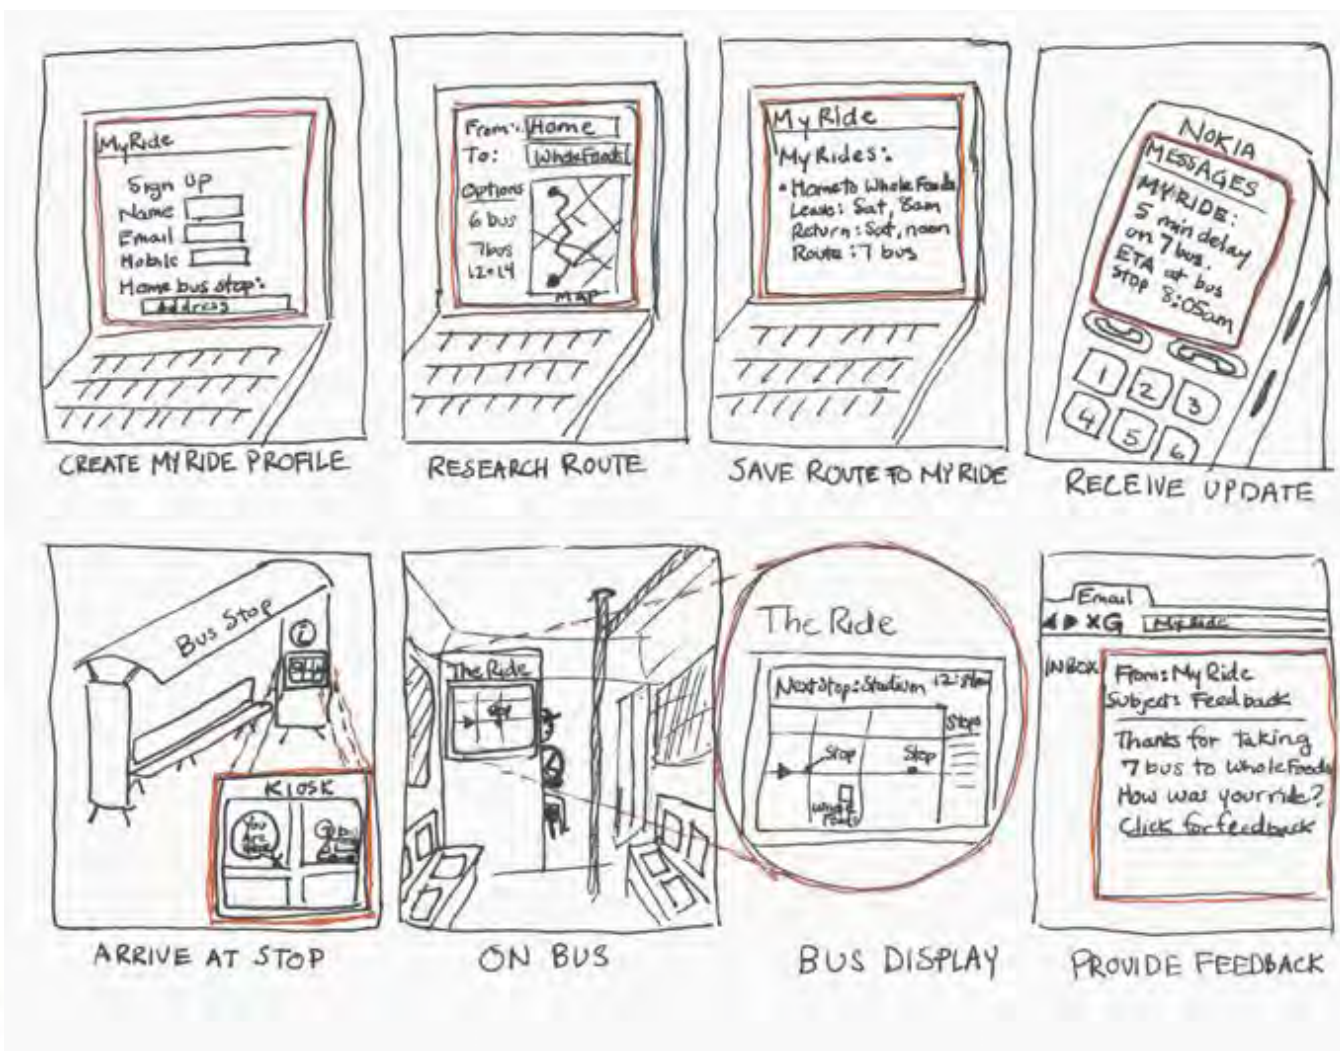 MyRide
Sign up
Name
Email
Mobile
Home bus stop:
Address
CREATE MYRIDE PROFILE
From: Home
To: Whole Foods
Options
6 bus
7 bus
MAP
RESEARCH ROUTE
MyRide
My Rides:
• Home to Whole Foods
Leave: Sat, 8am
Return: Sat, noon
Route: 7 bus
SAVE ROUTE TO MYRIDE
NOKIA
MESSAGES
MYRIDE:
5 min delay
on 7 bus.
ETA at bus
stop 8:05am
1 2 3
4 5 6
RECEIVE UPDATE
Bus Stop
i
KIOSK
You
are
bus
ARRIVE AT STOP
The Ride
Stop
ON BUS
The Ride
Next Stop: Stadium
Stops
Stop
Stop
Whole
Foods
BUS DISPLAY
Email
My Ride
INBOX
From: My Ride
Subject: Feedback
Thanks for taking
7 bus to Whole Foods
How was your ride?
Click for feedback
PROVIDE FEEDBACK